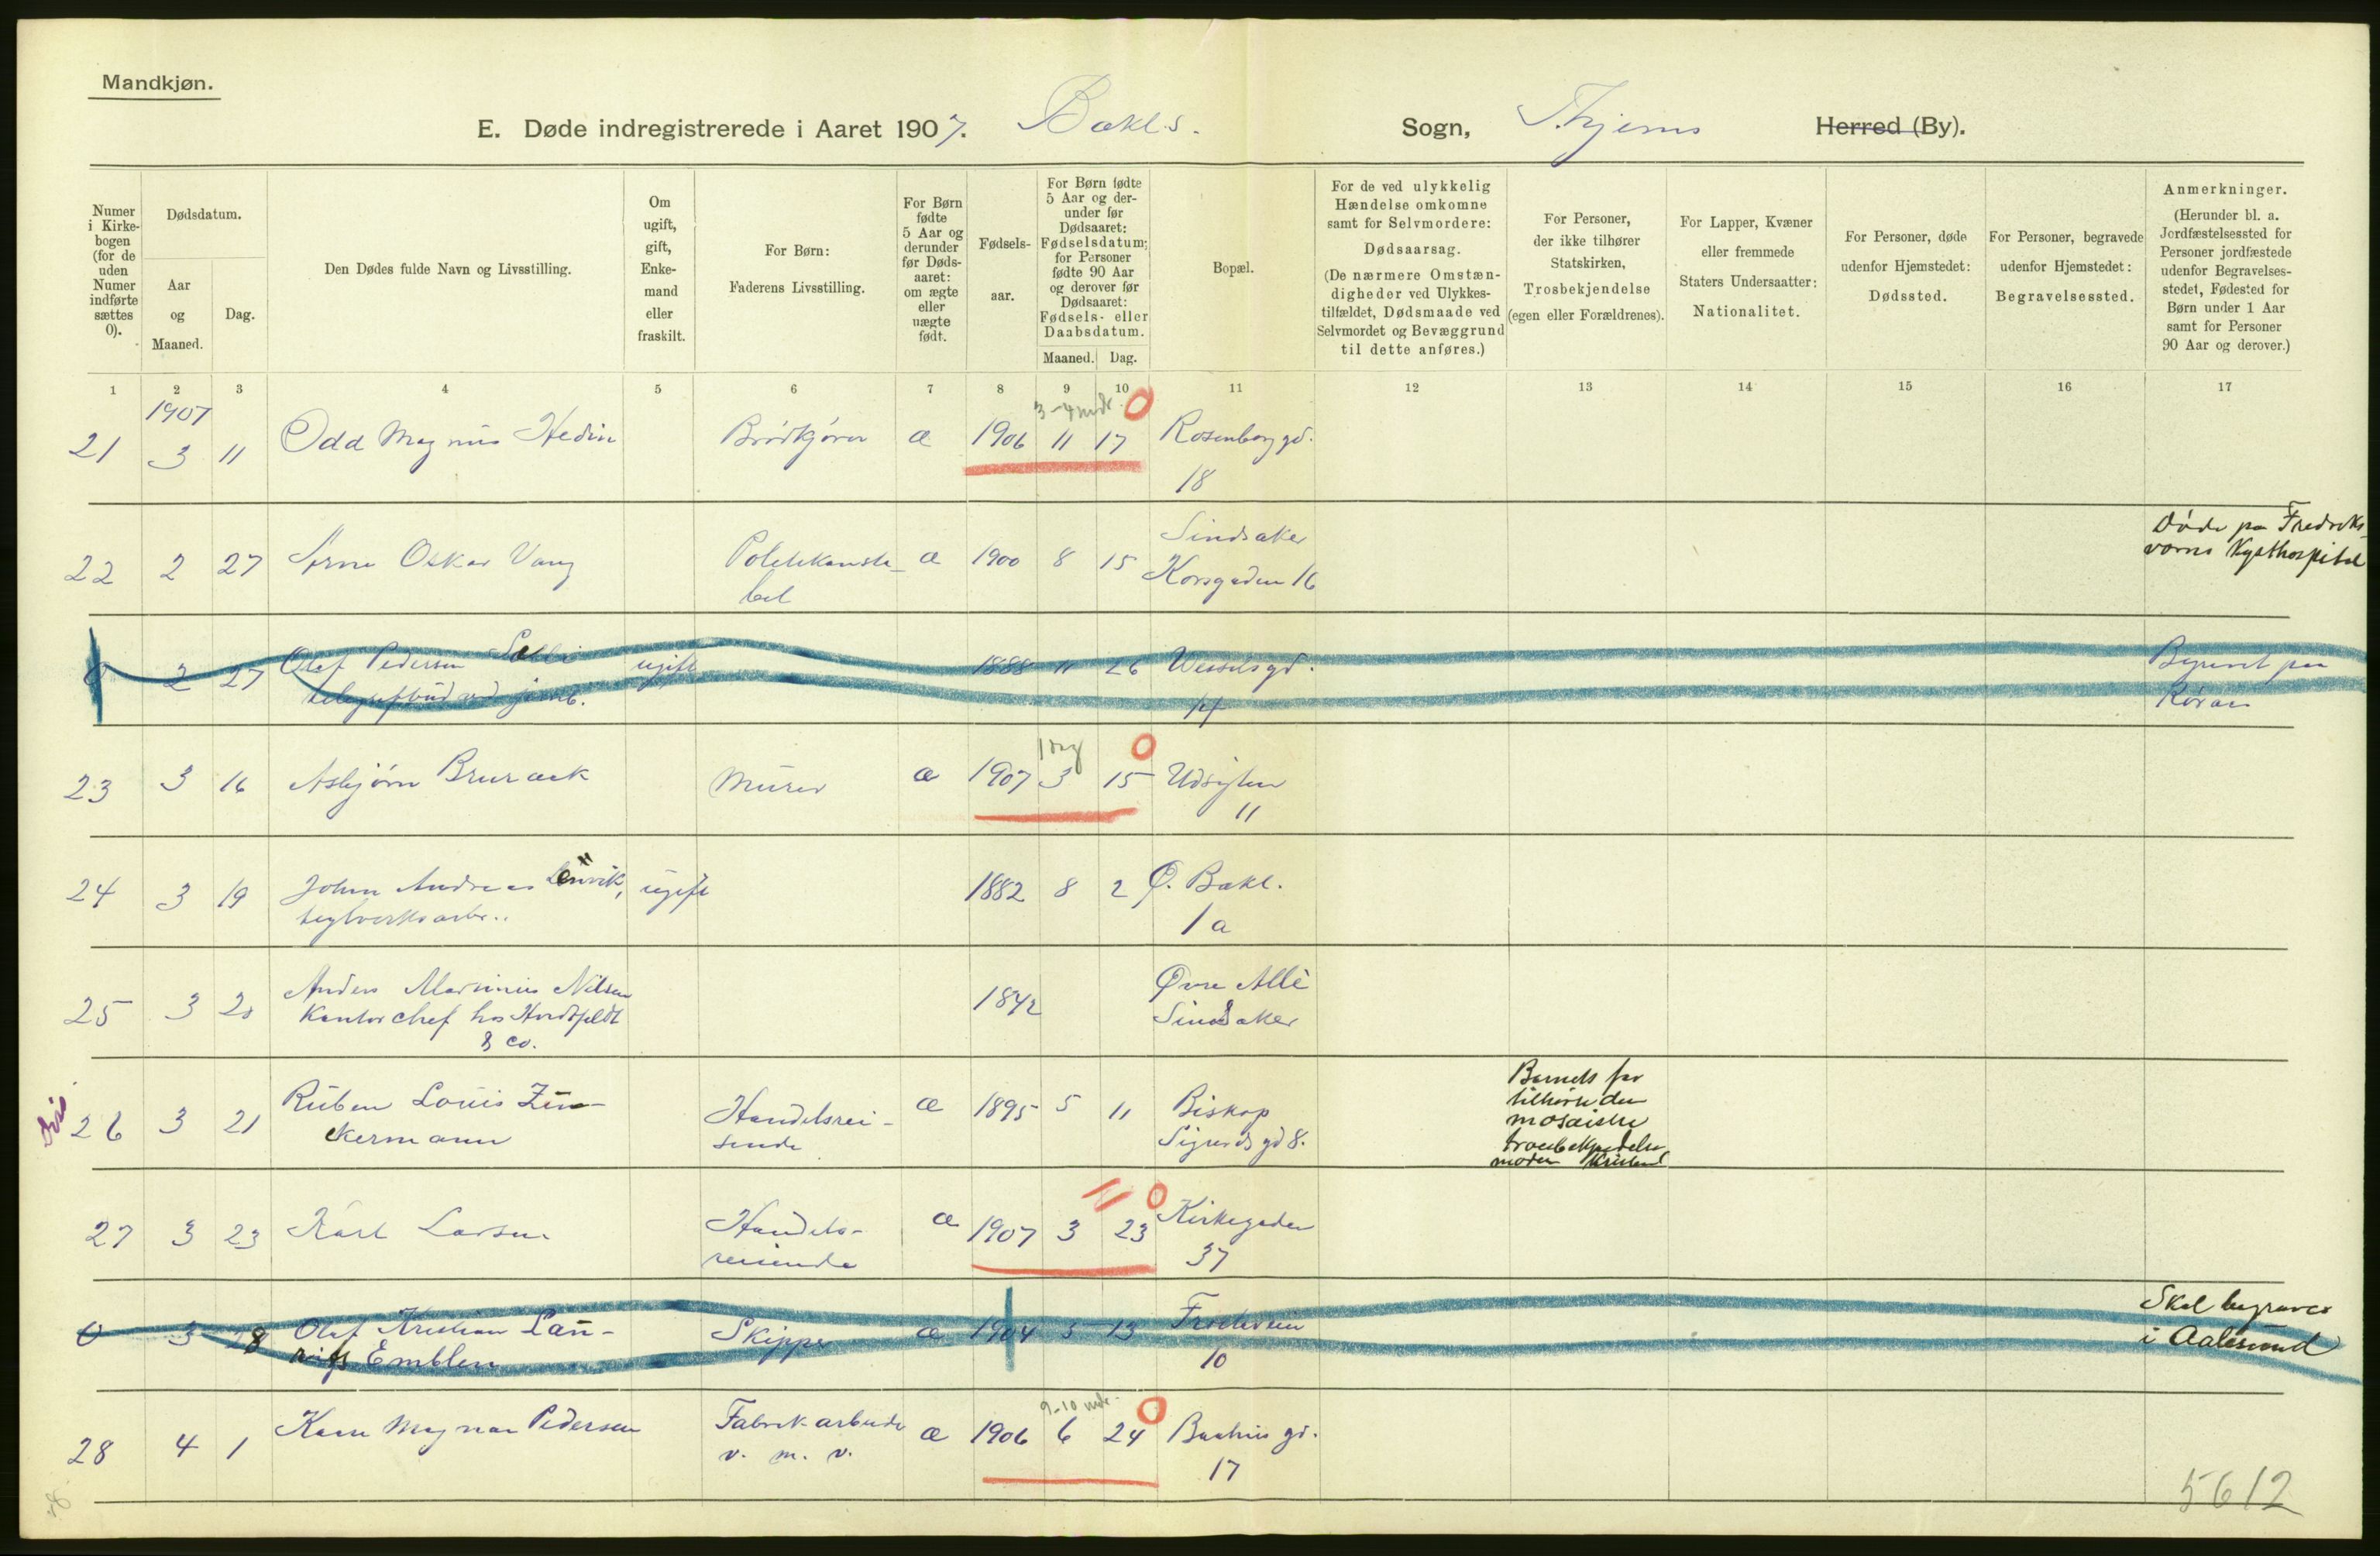 Mandkjøn.
E. Døde indregistrerede i Aaret 1907. Bakl.s. Sogn, Thjems Herred (By).
Numer i Kirke-bogen (for de uden Numer indførte sættes 0).
Dødsdatum.
Aar og Maaned.
Dag.
Den Dødes fulde Navn og Livsstilling.
Om ugift, gift, Enke-mand eller fraskilt.
For Børn: Faderens Livsstilling.
For Børn fødte 5 Aar og derunder før Døds-aaret: om ægte eller uægte født.
Fødsels-aar.
For Børn fødte 5 Aar og der-under før Dødsaaret: Fødselsdatum; for Personer fødte 90 Aar og derover før Dødsaaret: Fødsels- eller Daabsdatum.
Maaned. Dag.
Bopæl.
For de ved ulykkelig Hændelse omkomne samt for Selvmordere: Dødsaarsag. (De nærmere Omstæn-digheder ved Ulykkes-tilfældet, Dødsmaade ved Selvmordet og Bevæggrund til dette anføres.)
For Personer, der ikke tilhører Statskirken, Trosbekjendelse (egen eller Forældrenes).
For Lapper, Kvæner eller fremmede Staters Undersaatter: Nationalitet.
For Personer, døde udenfor Hjemstedet: Dødssted.
For Personer, begravede udenfor Hjemstedet: Begravelsessted.
Anmerkninger. (Herunder bl. a. Jordfæstelsessted for Personer jordfæstede udenfor Begravelses-stedet, Fødested for Børn under 1 Aar samt for Personer 90 Aar og derover.)
1 2 3 4 5 6 7 8 9 10 11 12 13 14 15 16 17
1907 3-4 mdr 0
21 3 11 Odd Magnus Hedin Brødkjører æ 1906 11 17 Rosenborg gd.
18
22 2 27 Arne Oskar Vang Politikonsta- æ 1900 8 15 Sindsaker Døde pa Fredriks
bel Korsgaden 16 værns Kysthospital
0 2 27 Olaf Pedersen ugift 1888 11 26 Wesselsgd. Begravet paa
telegrafbud ved jernb. Røraas
1 dag 0
23 3 16 Asbjørn Brurack Murer æ 1907 3 15 Udsigten
11
24 3 19 Johan Andreas Lenvik, ugift 1882 8 2 Ø. Bakl.
teglverksarb.. 1 a
25 3 Anders Marinius Nilsen 1842 Øvre Allè
Kontorchef hos Hordtfeldt Sindsaker
& Co.
26 3 21 Ruben Louis Zuc- Handelsrei- æ 1895 5 11 Biskop Barnets far
kermann sende Sigurds gd 8. tilhører den
mosaiske
trosbekjendelse
moder Kristen
0
27 3 23 Karl Larsen Handels- æ 1907 3 23 Kirkegaden
reisende 37
0 3 28 Olaf Kristian Lau- Skipper æ 1904 5 13 Frodeveien Skal begraves
ritz Emblem 10 i Aalesund
9-10 mdr. 0
28 4 1 Magnar Pedersen Fabrikarbeider æ 1906 6 24 Baahus gd.
v. m. v. 17
5612